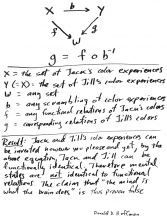 X b Y
f g
W
g = f o b⁻¹
X = the set of Jack's color experiences
Y (= X) = the set of Jill's color experiences
W = any set
b = any scrambling of color experiences
f = any functional relations of Jack's colors
g = corresponding relations of Jill's colors
Result: Jack and Jill's color experiences can
be inverted however you please and yet, by the
above equation, Jack and Jill can be
functionally identical. Therefore mental
states are not identical to functional
relations. The claim that "the mind is
what the brain does" is thus proven false
Donald D. Hoffman